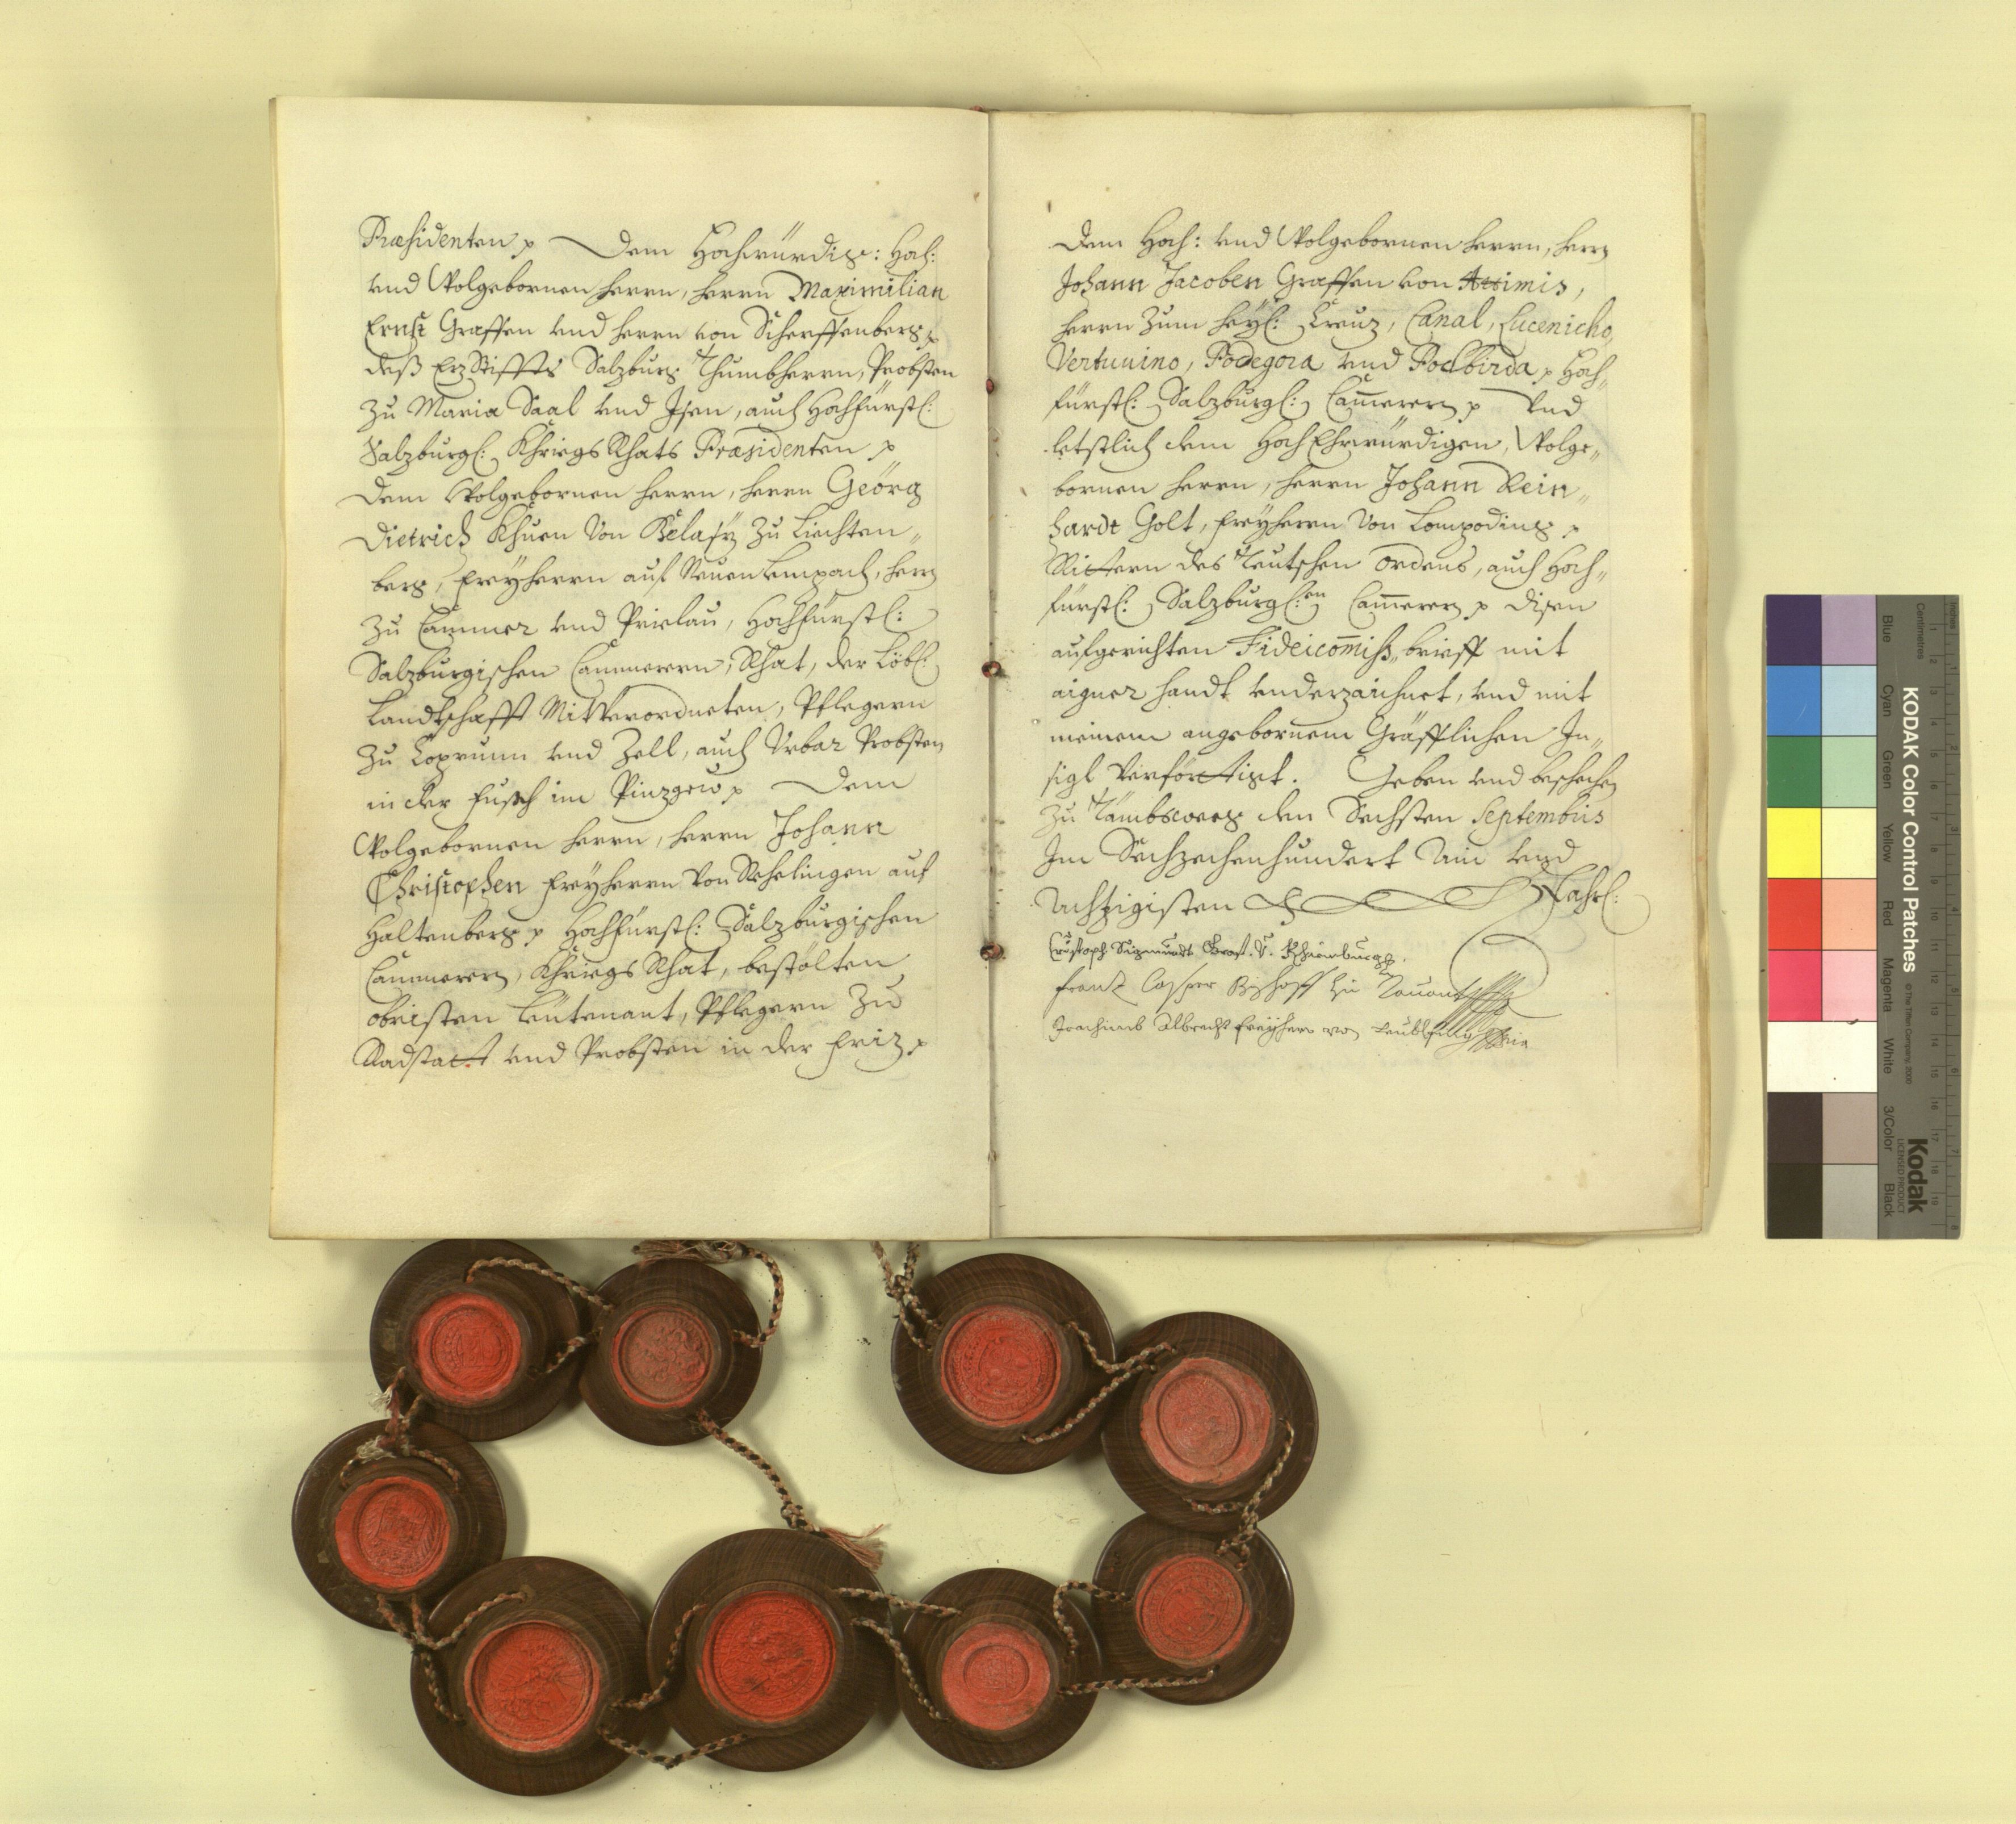 Præsidenten ꝛ Dem Hochwürdig: Hoch:
vnd Wolgebornen herrn, herrn Maximilian
Ernst Graffen vnd herrn von Scherffenberg ꝛ
deß ErzStiffts Salzburg Thumbherrn, Probsten
zu Maria Saal vnd Isen, auch Hochfürstl:
Salzburgl: Khriegs Rhats Præsidenten ꝛ
Dem Wolgebornen herrn, herrn Geörg
Dietrich Khuen von Belasÿ zu Liechten„
berg, Freÿherrn auf Neuen Lempach, herrn
zu Cammer vnd Prielau, Hochfürstl:
Salzburgischen Cammerern, Rhat, der Löbl:
Landtschafft Mitverordneten, Pflegern
zu Coprunn vnd Zell, auch Vrbar Probsten
in der Fusch im Pinzgew ꝛ Dem
Wolgebornen herrn, herrn Johann
Christophen Freÿherrn von Rehelingen auf
Haltenberg ꝛ Hochfürstl: Salzburgischen
Cammerern, Khriegs Rhat, bestölten
obristen Leütenant, Pflegern zu
Radstatt vnd Probsten in der Friz ꝛ
Dem Hoch: vnd Wolgebornen herrn, herrn
Johann Jacoben Graffen von Attimis,
herrn zum heÿl: Creuz, Canal, Lucenicho,
Vertuuino, Podegora vnd Podbirda ꝛ Hoch„
fürstl: Salzburgl: Cam̄erern ꝛ Vnd
letstlich dem HochEhrwürdigen, Wolge„
bornen herrn, herrn Johann Rein„
hardt Golt, Freÿherrn von Lampoding ꝛ
Rittern des Teutschen Ordens, auch Hoch„
fürstl: Salzburgl:en Cam̄erern ꝛ disen
aufgerichten Fideicom̄iß„brieff mit
aigner handt vnderzaichnet, vnd mit
meinem angebornem Gräfflichen In„
sigl verförtigt. Geben vnd beschechen
zu Tambsweeg den Sechsten Septembris
Im Sechzechenhundert Ain vnd
Achtzigisten Jahrl:
Cristoph Sigmundt Graf. V. Schernburgh.
Frantz Casper Bischoff zu Lauant
Joachimb Albrecht Freÿherr von
KODAK Color Control Patches
© The Tiffen Company, 2000
Kodak
LICENSED PRODUCT
Centimetres
Inches
Blue
Cyan
Green
Yellow
Red
Magenta
White
3/Color
Black